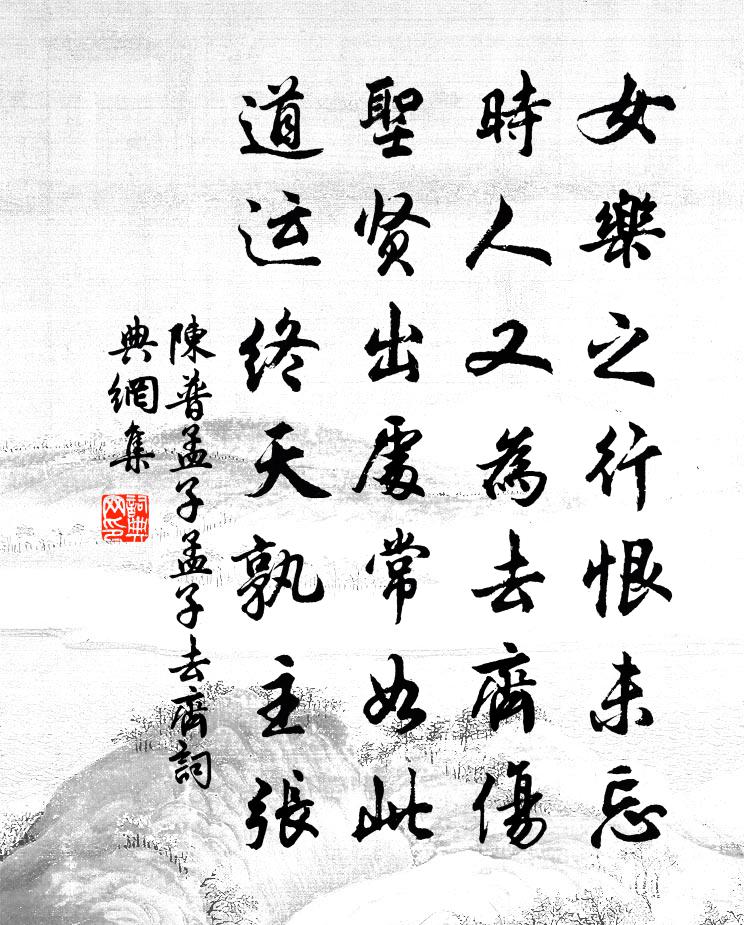 女樂之行恨未忘
時人又為去齊傷
聖贤出處常如此
道运終天孰主張
陳普孟子孟子去齊詞
典網集
詞典
网印